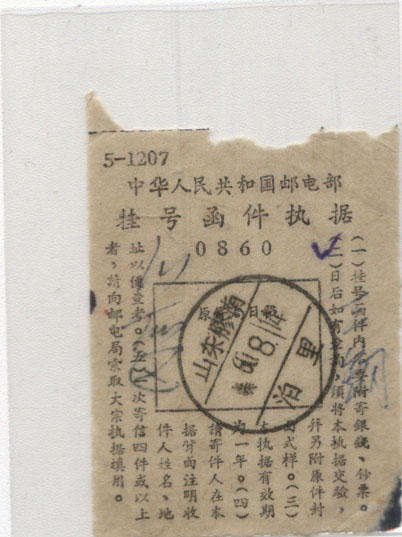 5-1207
中华人民共和国邮电部
挂号函件执据
0860
(一)挂号函件内不要附寄銀錢、鈔票。
(二)日后如有查詢,須將本执据交驗,
幷另附原件封
面式样。(三)
本执据有效期
为一年。(四)
請寄件人在本
据背面注明收
件人姓名、地
址以備查考。(五)一次寄信四件或以上
者,請向邮电局索取大宗执据填用。
原
日
山东膠南
60.8.14
泊里